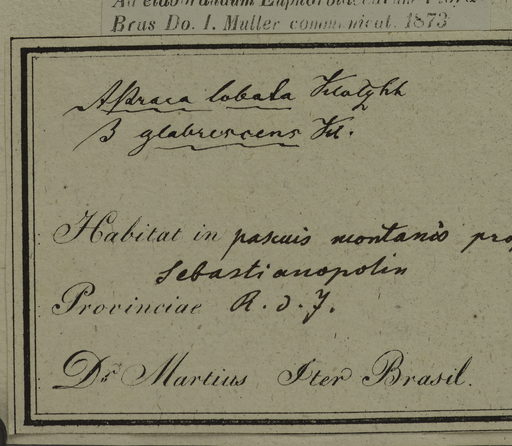 Ad elaborandum Euphorbiacearum Flora
Bras Do. I. Muller communicat. 1873
Astraea lobata Klotzhh
β glabrescens Kl.
Habitat in pascuis montanis prop
Sebastianopolin
Provinciae R. d. J.
Dr. Martius Iter Brasil.